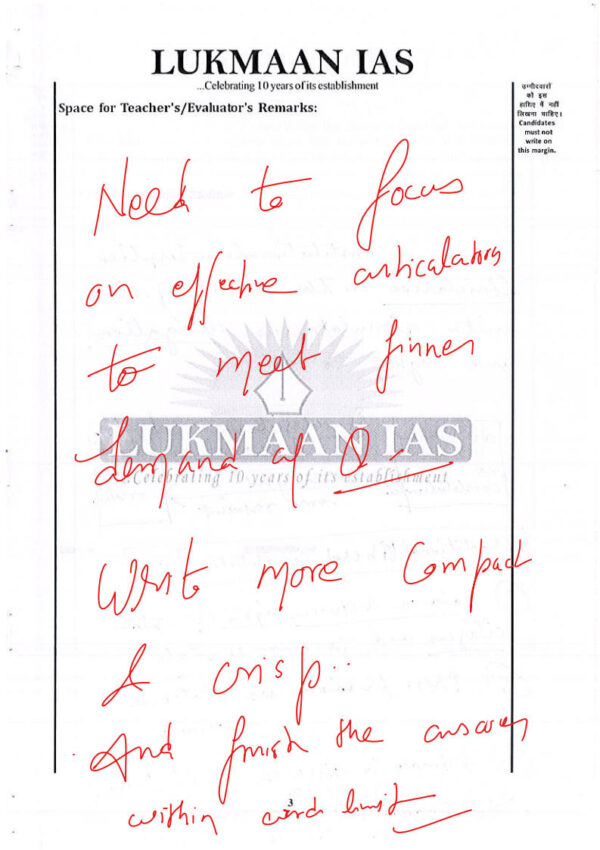 LUKMAAN IAS
...Celebrating 10 years of its establishment
Space for Teacher's/Evaluator's Remarks:
उम्मीदवारों
को इस
हाशिए में नहीं
लिखना चाहिए।
Candidates
must not
write on
this margin.
Need to focus
on effective articulation
to meet finner
LUKMAAN IAS
demand of Q
...Celebrating 10 years of its establishment
Write more Compact
& crisp..
And finish the answer
3
within word limit